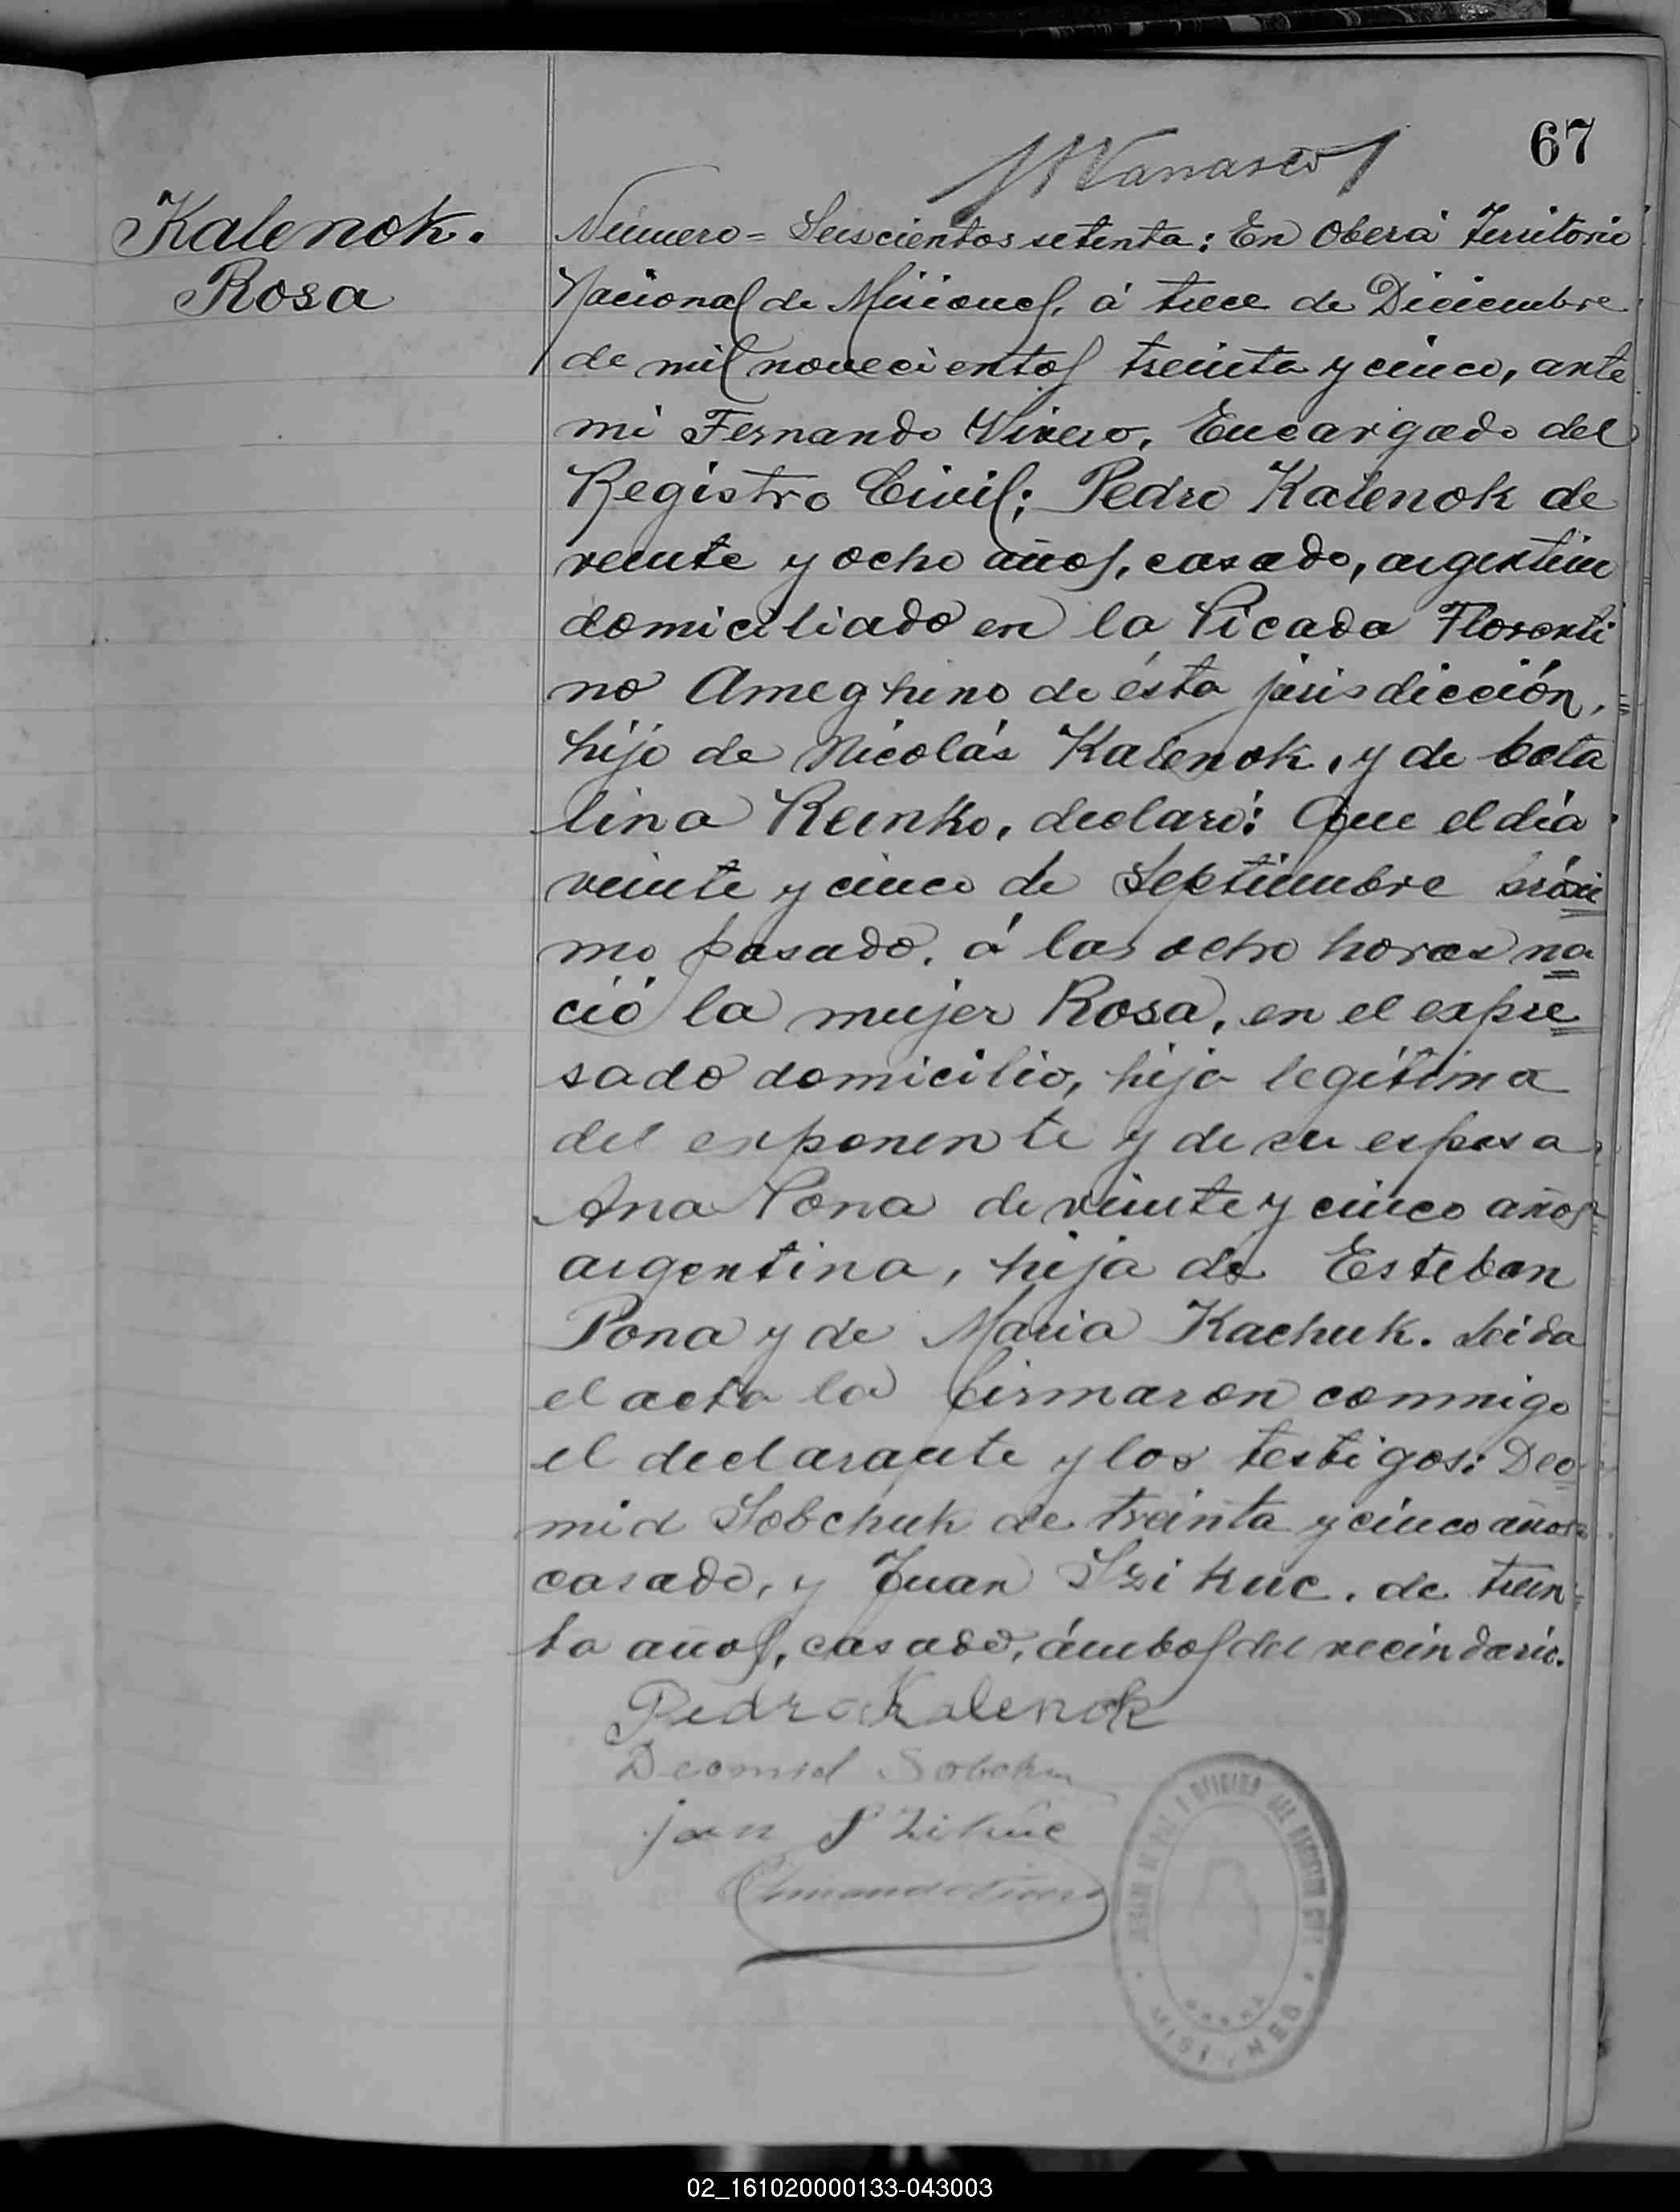 67
Kalenok.
Rosa
Número = Seiscientos setenta: En Oberá Territorio
Nacional de Misiones, á trece de Diciembre
de mil novecientos treinta y cinco, ante
mi Fernando Vivero, Encargado del
Registro Civil; Pedro Kalenok de
veinte y ocho años, casado, argentino
domiciliado en la Picada Florenti
no Ameghino de ésta jurisdicción,
hijo de Nicolás Kalenok, y de Cata
lina Reinko, declaró: Que el dia
veinte y cinco de Septiembre próxi
mo pasado, á las ocho horas na
ció la mujer Rosa, en el expre
sado domicilio, hija legítima
del exponente y de su esposa
Ana Pona de veinte y cinco años
argentina, hija de Esteban
Pona y de Maria Kachuk. Leida
el acta la firmaron conmigo
el declarante y los testigos: Deo
mid Sobchuk de treinta y cinco años
casado, y Juan Szikuc, de trein
ta años, casado, ámbos del vecindario.
Pedro Kalenok
Deomid Sobchu
jan Szikuc
MISIONES
02_161020000133-043003